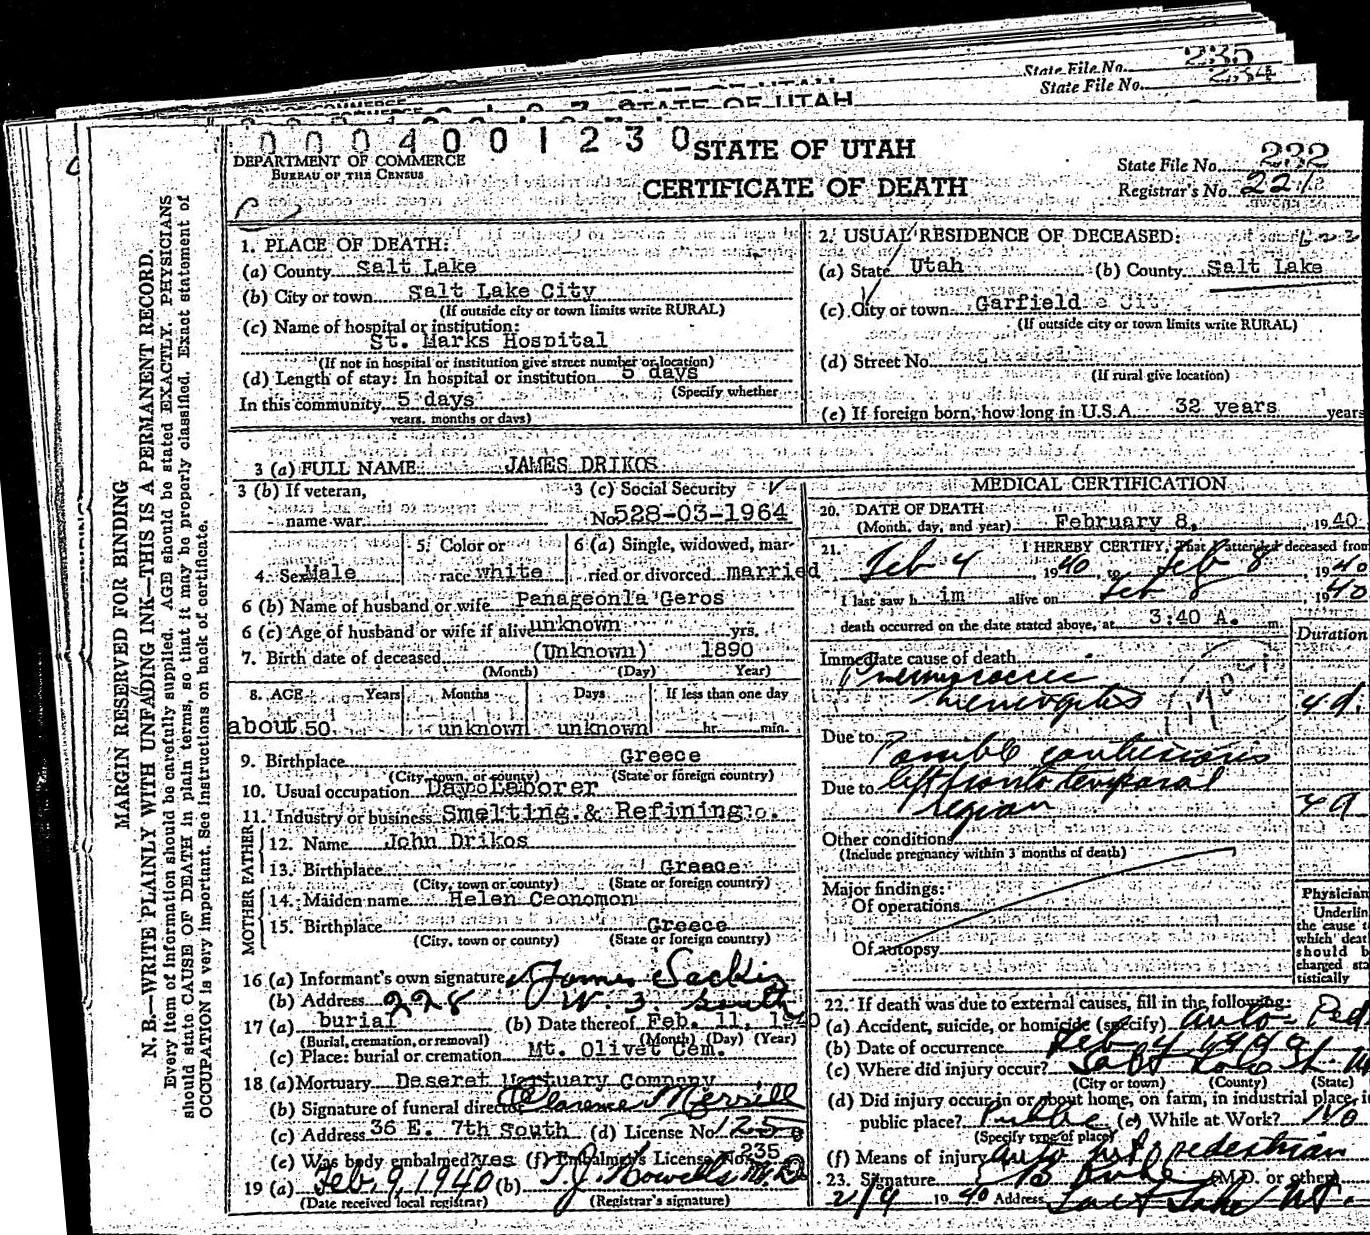 State File No. 235
State File No. 234
STATE OF UTAH
0 0 0 4 0 0 1 2 3 0
STATE OF UTAH
CERTIFICATE OF DEATH
DEPARTMENT OF COMMERCE
BUREAU OF THE CENSUS
State File No. 232
Registrar's No. 221
MARGIN RESERVED FOR BINDING
N. B.—WRITE PLAINLY WITH UNFADING INK—THIS IS A PERMANENT RECORD.
Every item of information should be carefully supplied. AGE should be stated EXACTLY. PHYSICIANS
should state CAUSE OF DEATH in plain terms, so that it may be properly classified. Exact statement of
OCCUPATION is very important. See instructions on back of certificate.
1. PLACE OF DEATH:
(a) County Salt Lake
(b) City or town Salt Lake City
(If outside city or town limits write RURAL)
(c) Name of hospital or institution:
St. Marks Hospital
(If not in hospital or institution give street number or location)
(d) Length of stay: In hospital or institution 5 days
(Specify whether
In this community 5 days
years, months or days)
2. USUAL RESIDENCE OF DECEASED:
(a) State Utah (b) County Salt Lake
(c) City or town Garfield
(If outside city or town limits write RURAL)
(d) Street No.
(If rural give location)
(e) If foreign born, how long in U.S.A. 32 years years
3 (a) FULL NAME JAMES DRIKOS
3 (b) If veteran,
name war
3 (c) Social Security
No. 528-03-1964
4. Sex Male
5. Color or
race white
6 (a) Single, widowed, mar-
ried or divorced married
6 (b) Name of husband or wife Panageonla Geros
6 (c) Age of husband or wife if alive unknown yrs.
7. Birth date of deceased (Unknown) 1890
(Month) (Day) Year)
8. AGE Years Months Days If less than one day
about 50 unknown unknown hr. min.
9. Birthplace Greece
(City, town, or county) (State or foreign country)
10. Usual occupation Day Laborer
11. Industry or business Smelting & Refining
FATHER
12. Name John Drikos
13. Birthplace Greece
(City, town or county) (State or foreign country)
MOTHER
14. Maiden name Helen Ceonomon
15. Birthplace Greece
(City, town or county) (State or foreign country)
16 (a) Informant's own signature James Sackis
(b) Address 228 W. 3 South
17 (a) burial (b) Date thereof Feb. 11, 1940
(Burial, cremation, or removal) (Month) (Day) (Year)
(c) Place: burial or cremation Mt. Olivet Cem.
18 (a) Mortuary Deseret Mortuary Company
(b) Signature of funeral director Clarence Merrill
(c) Address 36 E. 7th South (d) License No. 125
(e) Was body embalmed? yes (f) Embalmer's License No. 235
19 (a) Feb. 9, 1940 (b) T. J. Howells M.D.
(Date received local registrar) (Registrar's signature)
MEDICAL CERTIFICATION
20. DATE OF DEATH
(Month, day, and year) February 8, 1940
21. I HEREBY CERTIFY, That I attended deceased from
Feb 4 1940, to Feb 8 1940
I last saw h im alive on Feb 8 1940
death occurred on the date stated above, at 3:40 A. m.
Duration
Immediate cause of death
Pneumococcic
meningitis 4d.
Due to
Due to left fronto temporal
region
Other conditions
(Include pregnancy within 3 months of death)
Major findings:
Of operations
Of autopsy
Physician
Underlin
the cause t
which deat
should b
charged sta
tistically
22. If death was due to external causes, fill in the following:
(a) Accident, suicide, or homicide (specify) auto - Ped
(b) Date of occurrence Feb 4 1940
(c) Where did injury occur? Salt Lake
(City or town) (County) (State)
(d) Did injury occur in or about home, on farm, in industrial place, i
public place? Public (e) While at Work? No
(Specify type of place)
(f) Means of injury auto pedestrian
23. Signature (M.D. or other)
2/9 1940 Address Salt Lake